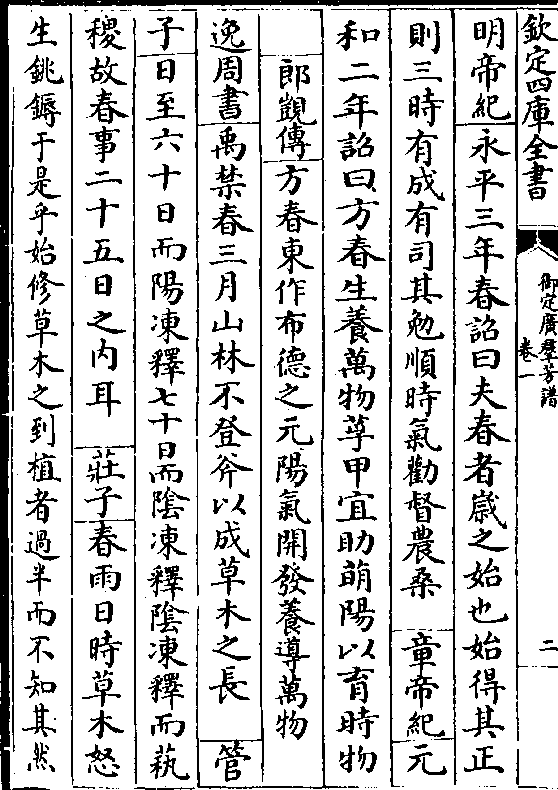 欽定四庫全書
御定廣羣芳譜
卷一
二
明帝紀永平三年春詔曰夫春者歲之始也始得其正
則三時有成有司其勉順時氣勸督農桑 章帝紀元
和二年詔曰方春生養萬物莩甲宜助萌陽以育時物
郎觀傳方春東作布德之元陽氣開發養導萬物
逸周書禹禁春三月山林不登斧以成草木之長 管
子日至六十日而陽凍釋七十日而陰凍釋陰凍釋而蓺
稷故春事二十五日之內耳 莊子春雨日時草木怒
生銚鎒于是乎始修草木之到植者過半而不知其然